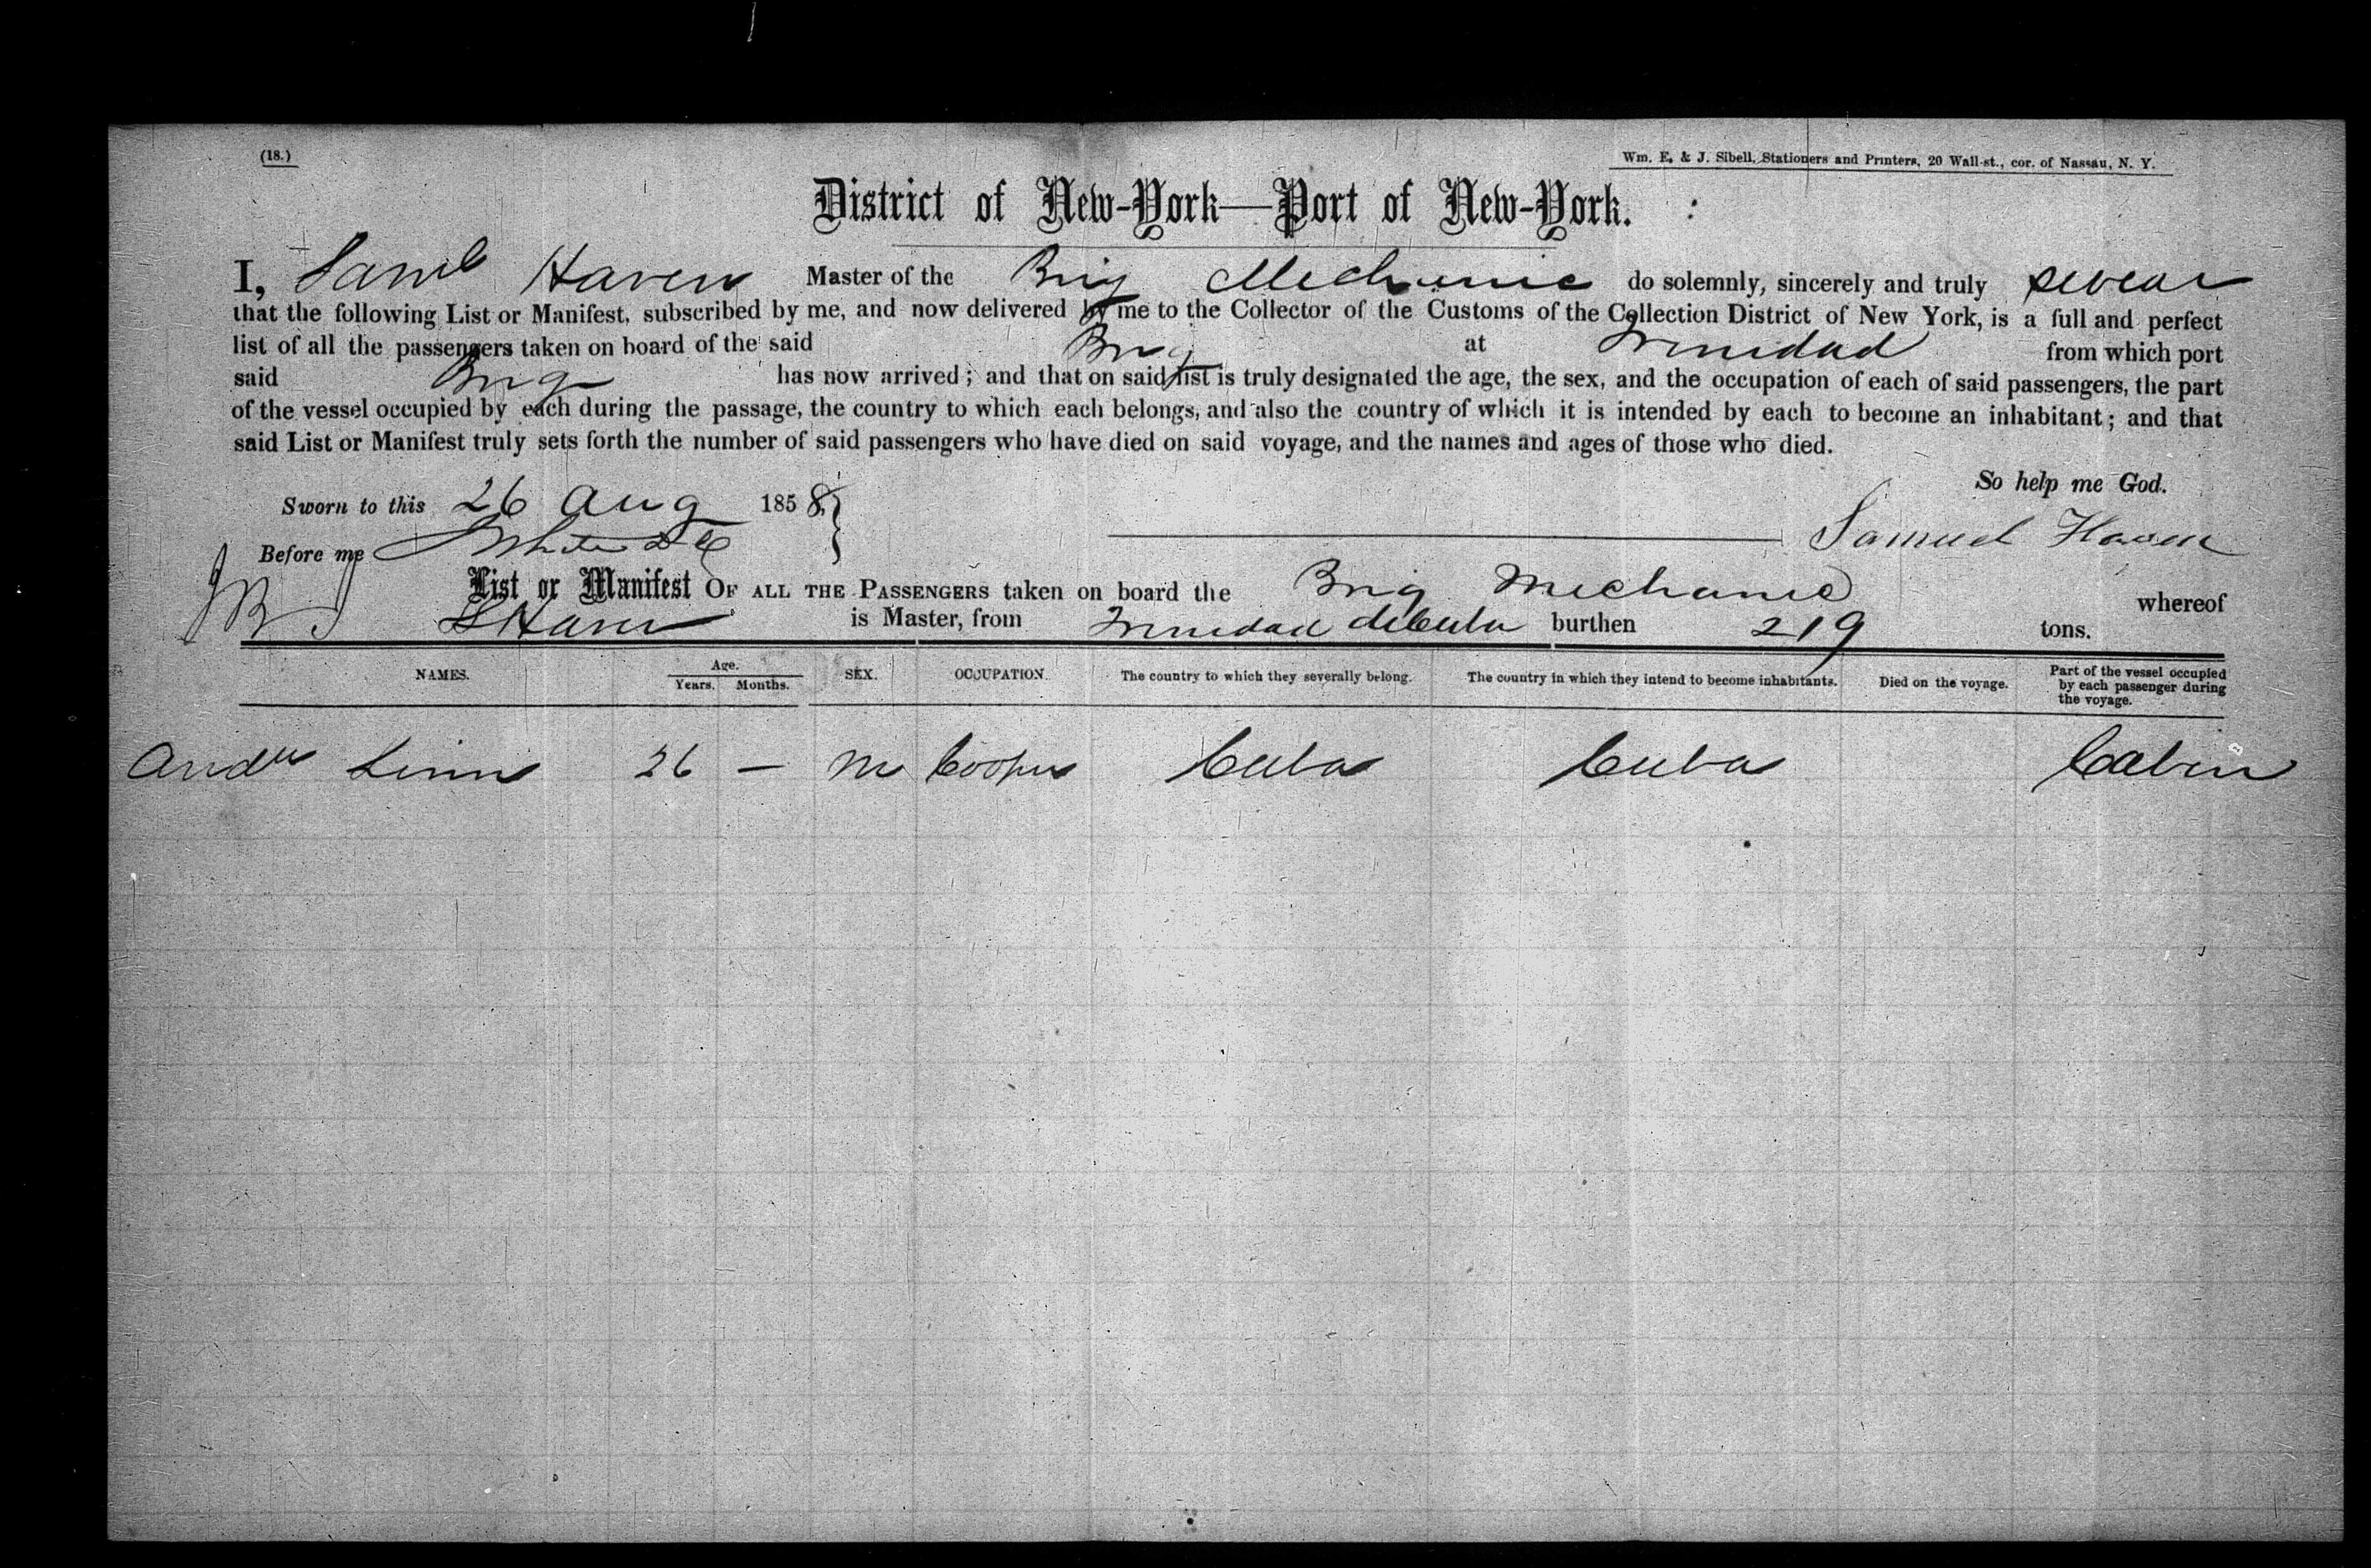 (18.)
Wm. E. & J. Sibell, Stationers and Printers, 20 Wall-st., cor. of Nassau, N. Y.
District of New-York—Port of New-York.
I, Saml Haven Master of the Brig Mechanic do solemnly, sincerely and truly swear
that the following List or Manifest, subscribed by me, and now delivered by me to the Collector of the Customs of the Collection District of New York, is a full and perfect
list of all the passengers taken on board of the said Brig at Trinidad from which port
said Brig has now arrived; and that on said list is truly designated the age, the sex, and the occupation of each of said passengers, the part
of the vessel occupied by each during the passage, the country to which each belongs, and also the country of which it is intended by each to become an inhabitant; and that
said List or Manifest truly sets forth the number of said passengers who have died on said voyage, and the names and ages of those who died.
So help me God.
Sworn to this 26 Aug 1858.
Samuel Haven
Before me
List or Manifest OF ALL THE PASSENGERS taken on board the Brig Mechanic whereof
S Haven is Master, from Trinidad de Cuba burthen 219 tons.
NAMES. Age. Years. Months. SEX. OCCUPATION. The country to which they severally belong. The country in which they intend to become inhabitants. Died on the voyage. Part of the vessel occupied by each passenger during the voyage.
Andw Linn 26 — M Cooper Cuba Cuba Cabin